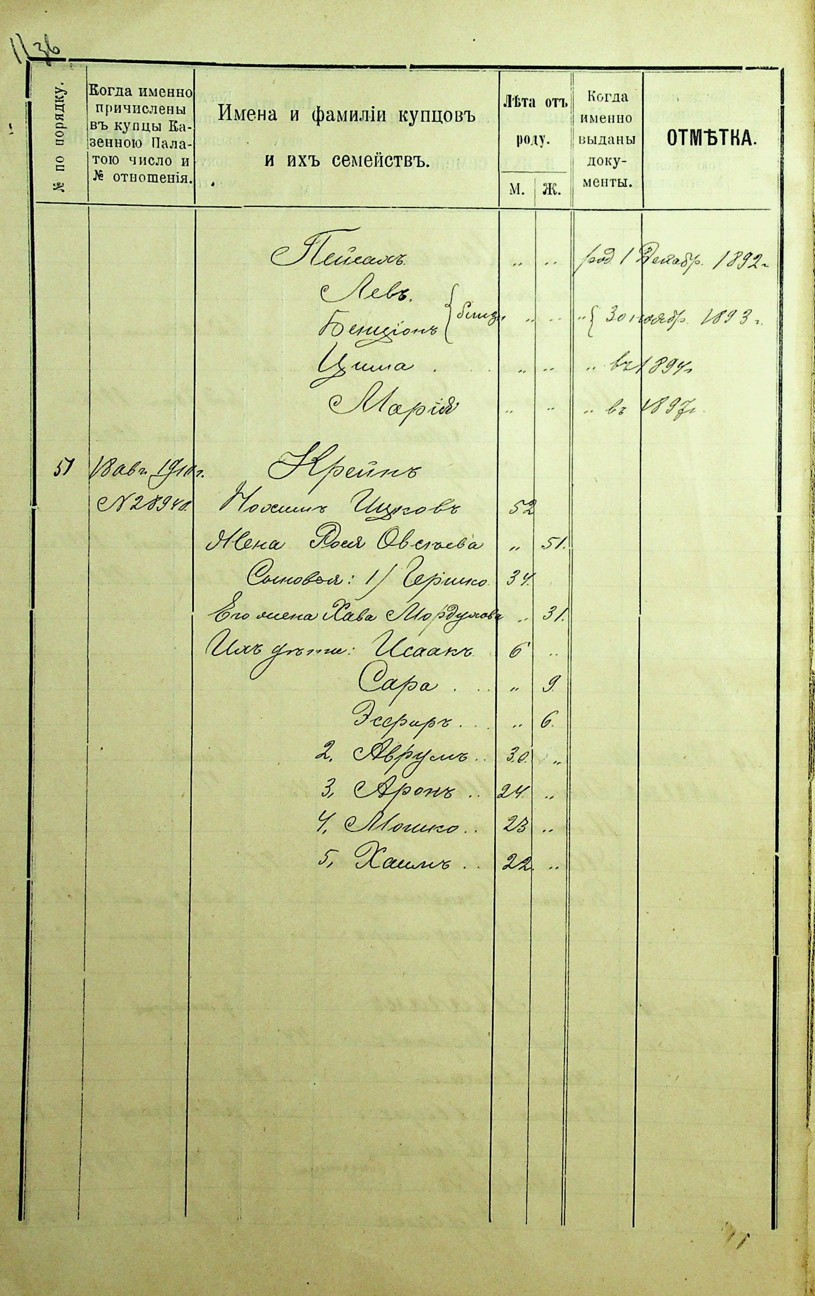 1136
№ по порядку.
Когда именно
причислены
въ купцы Ка-
зенною Пала-
тою число и
№ отношенія.
Имена и фамиліи купцовъ
и ихъ семействъ.
Лѣта отъ
роду.
М. Ж.
Когда
именно
выданы
доку-
менты.
ОТМѢТКА.
Пейсахъ „ „ род. 1 Декабр. 1892 г.
Левъ.
Бенціонъ } близн. „ „ „ { 30 ноябр. 1893 г.
Цима . . „ „ „ въ 1894 г.
Марія „ „ „ въ 1897 г.
51 18 авг. 1910 г. Крейнъ
№ 28940. Нохимъ Ицковъ 52
Жена Рося Овсѣева „ 51.
Сыновья: 1) Гершко 34.
Его жена Хава Мордухова „ 31.
Ихъ дѣти: Исаакъ 6 „
Сара . . „ 9
Эсфирь . . „ 6.
2, Аврумъ . . 30. „
3, Аронъ . . 24. „
4, Мошко . . 23 „
5, Хаимъ . . 22. „